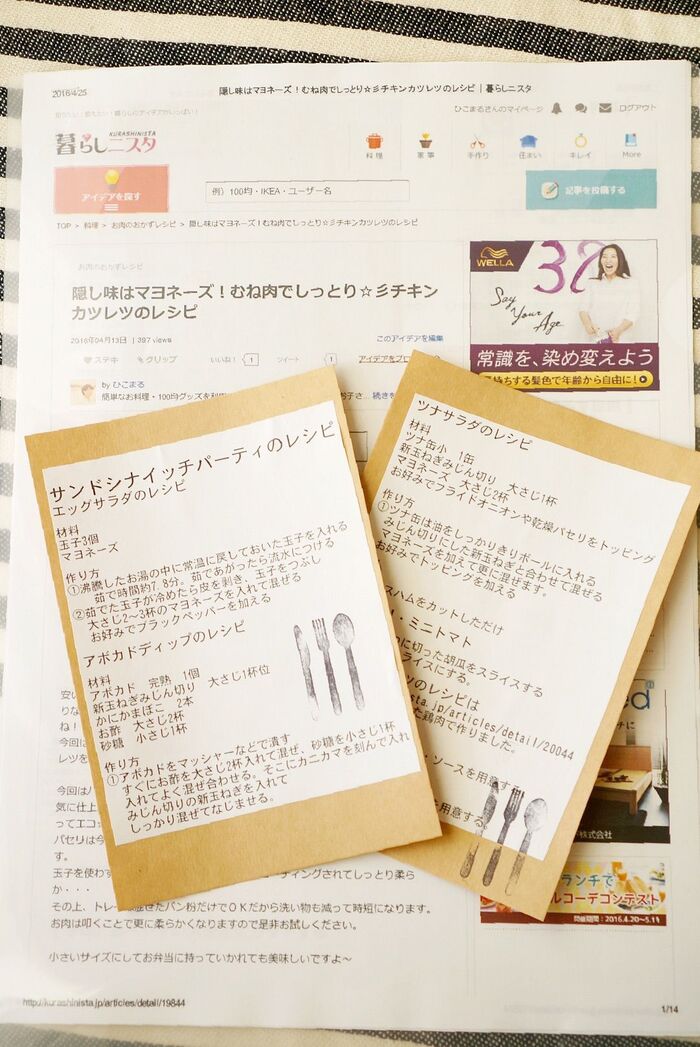 2016/4/25
隠し味はマヨネーズ！むね肉でしっとり☆彡チキンカツレツのレシピ | 暮らしニスタ
ひこまるさんのマイページ
ログアウト
KURASHINISTA
暮らしニスタ
料理
家事
手作り
住まい
キレイ
More
アイデアを探す
例）100均・IKEA・ユーザー名
記事を投稿する
TOP > 料理 > お肉のおかずレシピ > 隠し味はマヨネーズ！むね肉でしっとり☆彡チキンカツレツのレシピ
お肉のおかずレシピ
隠し味はマヨネーズ！むね肉でしっとり☆彡チキン
カツレツのレシピ
2016年04月13日 | 397 views
このアイデアを編集
ステキ
クリップ
いいね！
1
ツイート
1
アイデアをブロ
by ひこまる
簡単なお料理・100均グッズを利
続き
WELLA
Say
Your
Age
常識を、染め変えよう
持ちする髪色で年齢から自由に！
サンドシナイッチパーティのレシピ
エッグサラダのレシピ
材料
玉子3個
マヨネーズ
作り方
①沸騰したお湯の中に常温に戻しておいた玉子を入れる
茹で時間約7.8分。茹であがったら流水につける
②茹でた玉子が冷めたら皮を剥き、玉子をつぶし
大さじ2～3杯のマヨネーズを入れて混ぜる
お好みでブラックペッパーを加える
アボカドディップのレシピ
材料
アボカド　完熟　1個
新玉ねぎみじん切り　大さじ1杯位
かにかまぼこ　2本
お酢　大さじ2杯
砂糖　小さじ1杯
作り方
①アボカドをマッシャーなどで潰す
すぐにお酢を大さじ2杯入れて混ぜ、砂糖を小さじ1杯
入れてよく混ぜ合わせる。そこにカニカマを刻んで入れ
みじん切りの新玉ねぎを入れて
しっかり混ぜてなじませる。
ツナサラダのレシピ
材料
ツナ缶小　1缶
新玉ねぎみじん切り　大さじ1杯
マヨネーズ　大さじ2杯
お好みでフライドオニオンや乾燥パセリをトッピング
作り方
①ツナ缶は油をしっかりきりボールに入れる
みじん切りにした新玉ねぎと合わせて混ぜる
マヨネーズを加えて更に混ぜます。
お好みでトッピングを加える
スハムをカットしただけ
・ミニトマト
に切った胡瓜をスライスする
ライスにする。
ツのレシピは
sta.jp/articles/detail/20044
た鶏肉で作りました。
・ソースを用意す
用意する。
安い
りな
ね！
今回は
レツを
今回はパ
気に仕上
ってエコ
パセリは今
す。
玉子を使わず
ーティングされてしっとり柔ら
か・・・
その上、トレ
混ぜたパン粉だけでＯＫだから洗い物も減って時短になります。
お肉は叩くことで更に柔らかくなりますので是非お試しください。
小さいサイズにしてお弁当に持っていかれても美味しいですよ～
ed
チに
株式会社
ランチで
ルコーデコンテスト
開催期間：2016.4.20～5.11
http://kurashinista.jp/articles/detail/19844
1/14